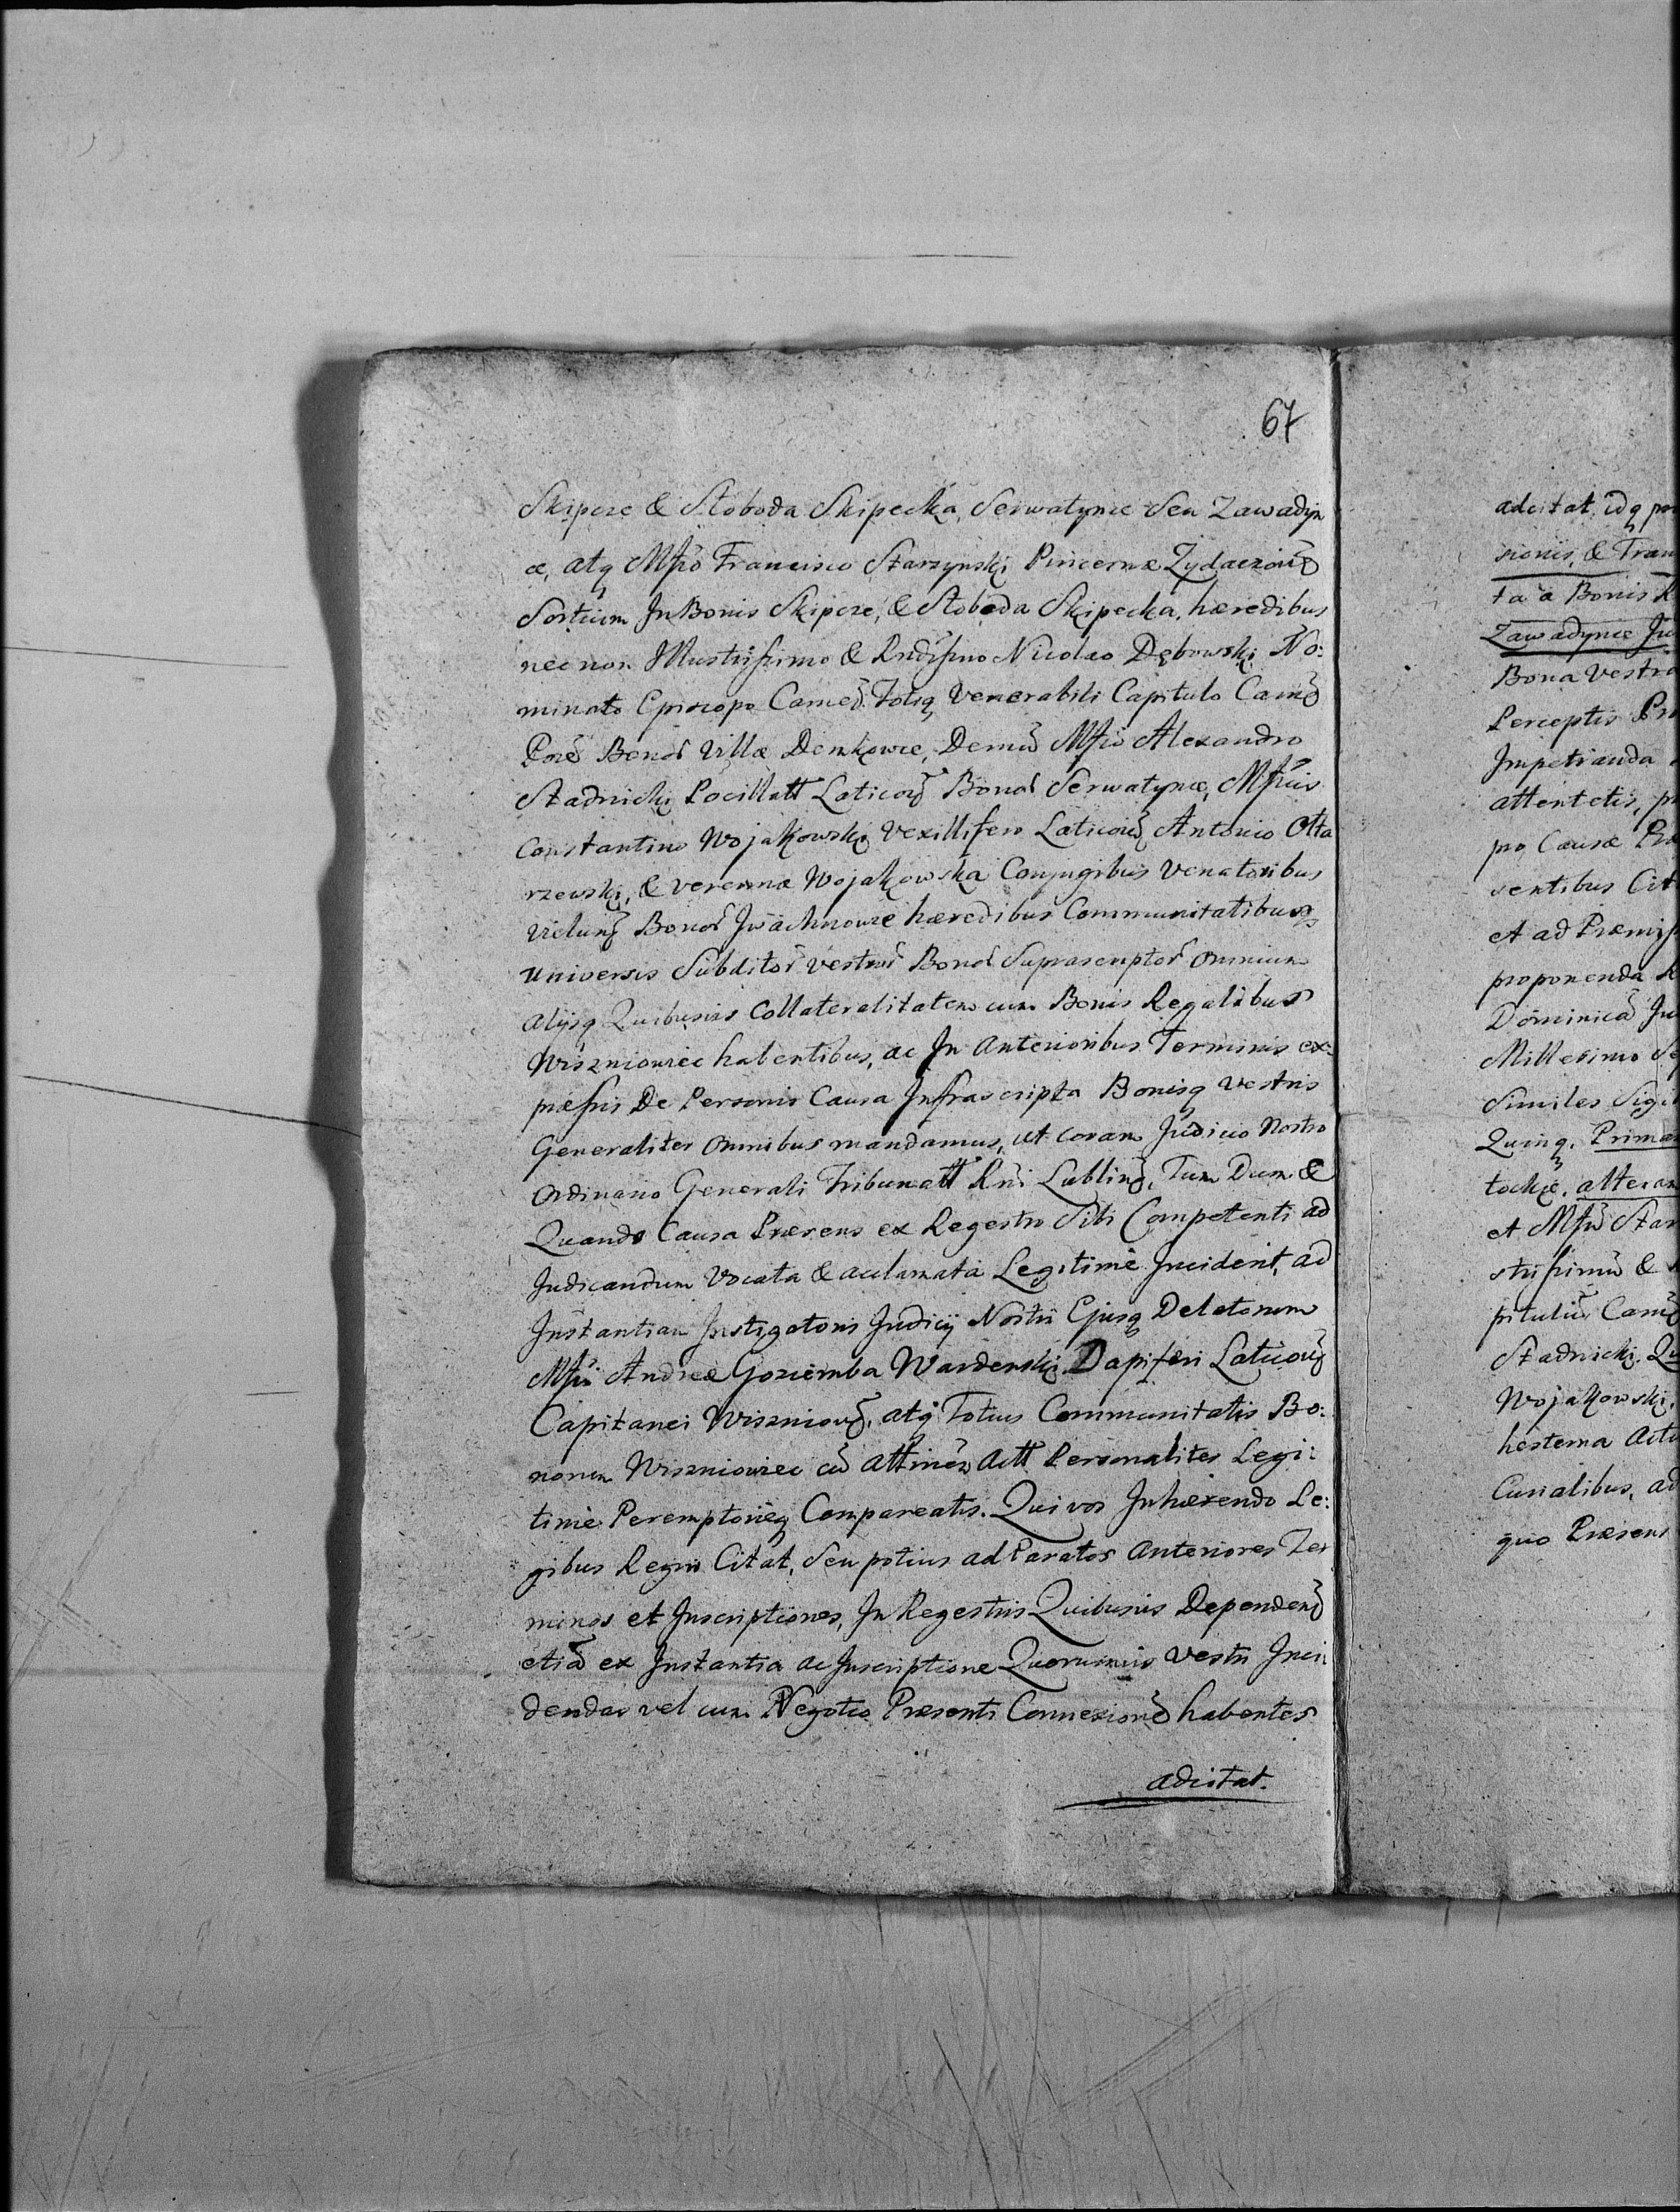 67
Skipcze & Słoboda Skipecka, Serwatynce Seu Zawadyn
ce, atq Mfico Francisco Starzynski Pincernæ Zydaczović
Sortium In Bonis Skipcze, & Słoboda Skipecka, hæredibus
nec non Illustrissimo & Rndissimo Nicolao Dębowski No:
minato Episcopo Cameń. Totiq Venerabili Capitulo Camń
Poře Bonoř Villæ Demkowce, Demū Mfico Alexandro
Stadnicki Pocillatt Laticov Bonoř Serwatynce, Mficis
Constantino Wojakowski Vexillifero Laticov, Antonio Ota
rzewski, & Verenna Wojakowska Conjugibus Venatoribus
Vielunș Bonoř Iwachnowce hæredibus Communitatibusq
Universis Subditoř vestroř Bonoř Suprascriptoř Omnium
Alijsq Quibusvis Collateralitatem cum Bonis Regalibus
Wiszniowiec habentibus, ac In Anterioribus Terminis ex:
pressis De Personis Causa Infrascripta Bonisq Vestris
Generaliter Omnibus mandamus, ut coram Judicio Nostro
Ordinario Generali Tribunatt Rni Lublinș, Tum Dum &
Quando Causa Præsens ex Regestro Sibi Competenti ad
Judicandum Vocata & acclamata Legitimè Inciderit, ad
Instantiam Instigatoris Judicij Nostri Ejusq Delatorum
Mfici Andreæ Goziemba Wardenski Dapiferi Laticov
Capitanei Wiszniov, atq Totius Communitatis Bo:
norum Wiszniowiec cū Attinen Actt Personaliter Legi:
timè Peremptorièq Compareatis. Qui vos Inhærendo Le:
gibus Regni Citat, Seu potius ad Paratos Anteriores Ter
minos et Inscriptiones, In Regestris Quibusvis Dependenș
etiā ex Instantia ac Inscriptione Quorumvis Vestri Inci
dendas vel cum Negotio Præsenti Connexionē habentes
adcitat.
adcitat, idq
sionis, & Tran
ta a Bonis R
Zawadynce Ju
Bona Vestra
Perceptis
Impetranda
attentetis,
pro Causæ
sentibus Cit
et ad Præmiss
proponenda
Dominicā Ju
Millesimo Se
Similes Sigil
Quinq. Prima
tockie, alteram
et Mficū Star
strissimū &
pitulū Camń
Stadnicki. Qu
Wojakowski,
hesterna Actu
Curialibus, ad
quo Præsens